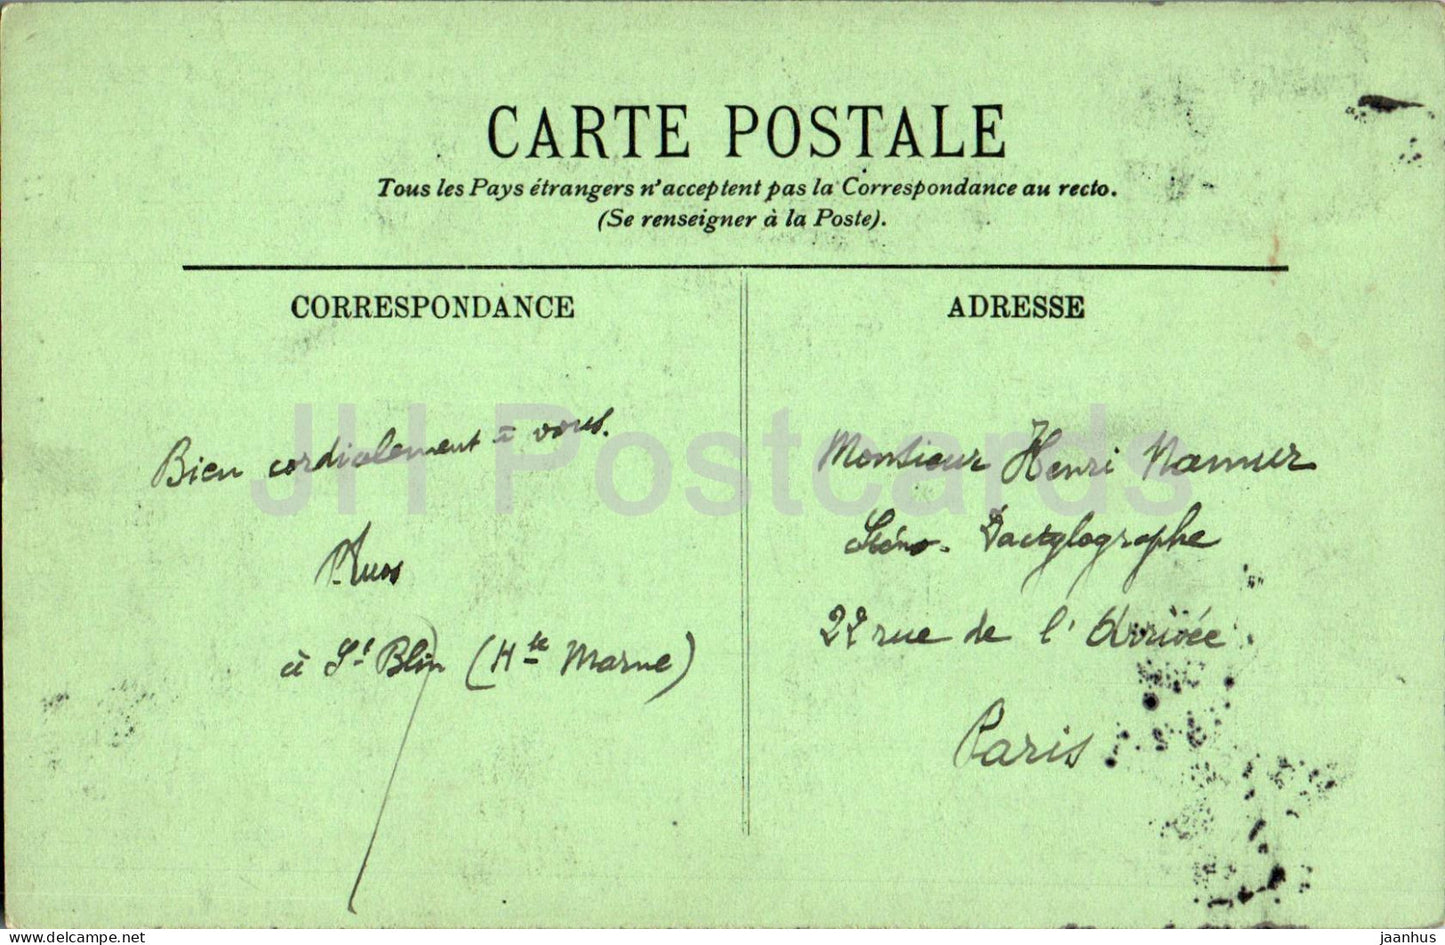 CARTE POSTALE
Tous les Pays étrangers n'acceptent pas la Correspondance au recto.
(Se renseigner à la Poste).
CORRESPONDANCE
ADRESSE
JH Postcards
Bien cordialement à vous.
à St Blin (Hte Marne)
Monsieur Henri Namur
Sténo-Dactylographe
22 rue de l'Arrivée.
Paris
www.delcampe.net
jaanhus